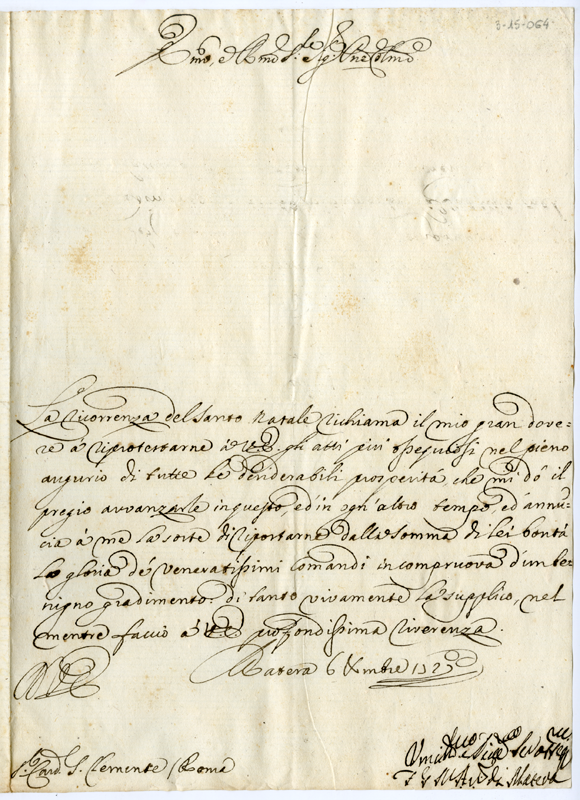 3-15-064
Emo, e Rmo Sig.re Sig.re Pne Colmo
La ricorrenza del Santo Natale richiama il mio gran dove=
re à riprotestarne à V.E. gli atti più ossequiosi nel pieno
augurio di tutte le desiderabili prosperità, che mi dò il
pregio avvanzarle in questo, ed in ogn'altro tempo, ed annu=
cia à me la sorte di riportarne dalla somma di lei bontà
la gloria de' veneratissimi comandi in compruova d'un be=
nigno gradimento: di tanto vivamente la supplico, nel
mentre faccio à V.E. profondissima riverenza.
Matera 6 Xmbre 1725
V.E.
S.r Card. S. Clemente / Roma
Umil.mo
di Matera